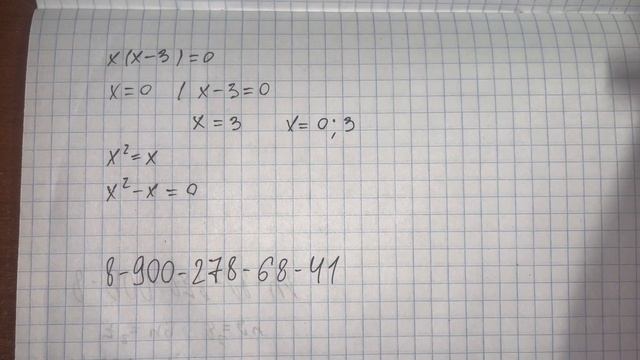 x(x-3)=0
x=0 / x-3=0
x=3 x=0;3
x²=x
x²-x=0
8-900-278-68-41